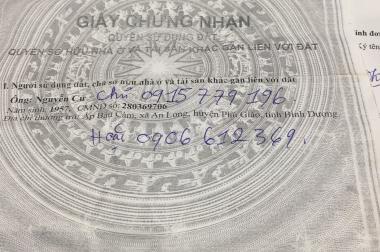 GIẤY CHỨNG NHẬN
QUYỀN SỬ DỤNG ĐẤT
QUYỀN SỞ HỮU NHÀ Ở VÀ TÀI SẢN KHÁC GẮN LIỀN VỚI ĐẤT
I. Người sử dụng đất, chủ sở hữu nhà ở và tài sản khác gắn liền với đất
Ông: Nguyễn Cư Chú 0915 779 196
Năm sinh: 1957, CMND số: 280369706
Địa chỉ thường trú: Ấp Bàu Cám, xã An Long, huyện Phú Giáo, tỉnh Bình Dương.
0906 612 369.